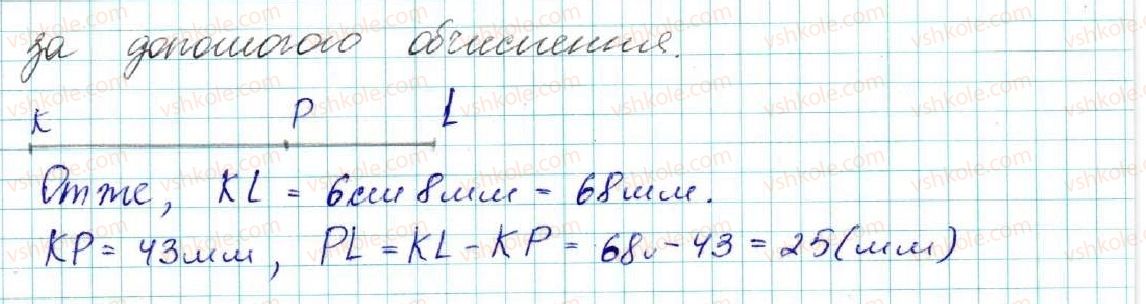 за допомогою обчислення.
K P L
Отже, KL = 6см 8мм = 68мм.
KP = 43мм, PL = KL - KP = 68 - 43 = 25(мм)
vshkole.com